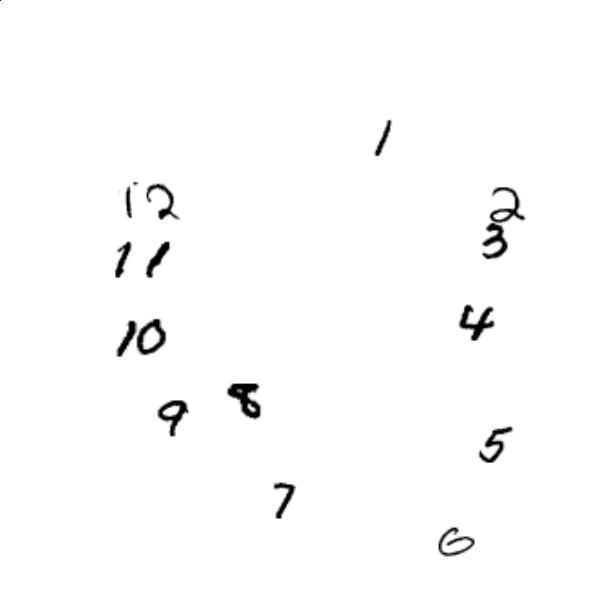 1
12 2
11 3
10 4
9 8
5
7
6